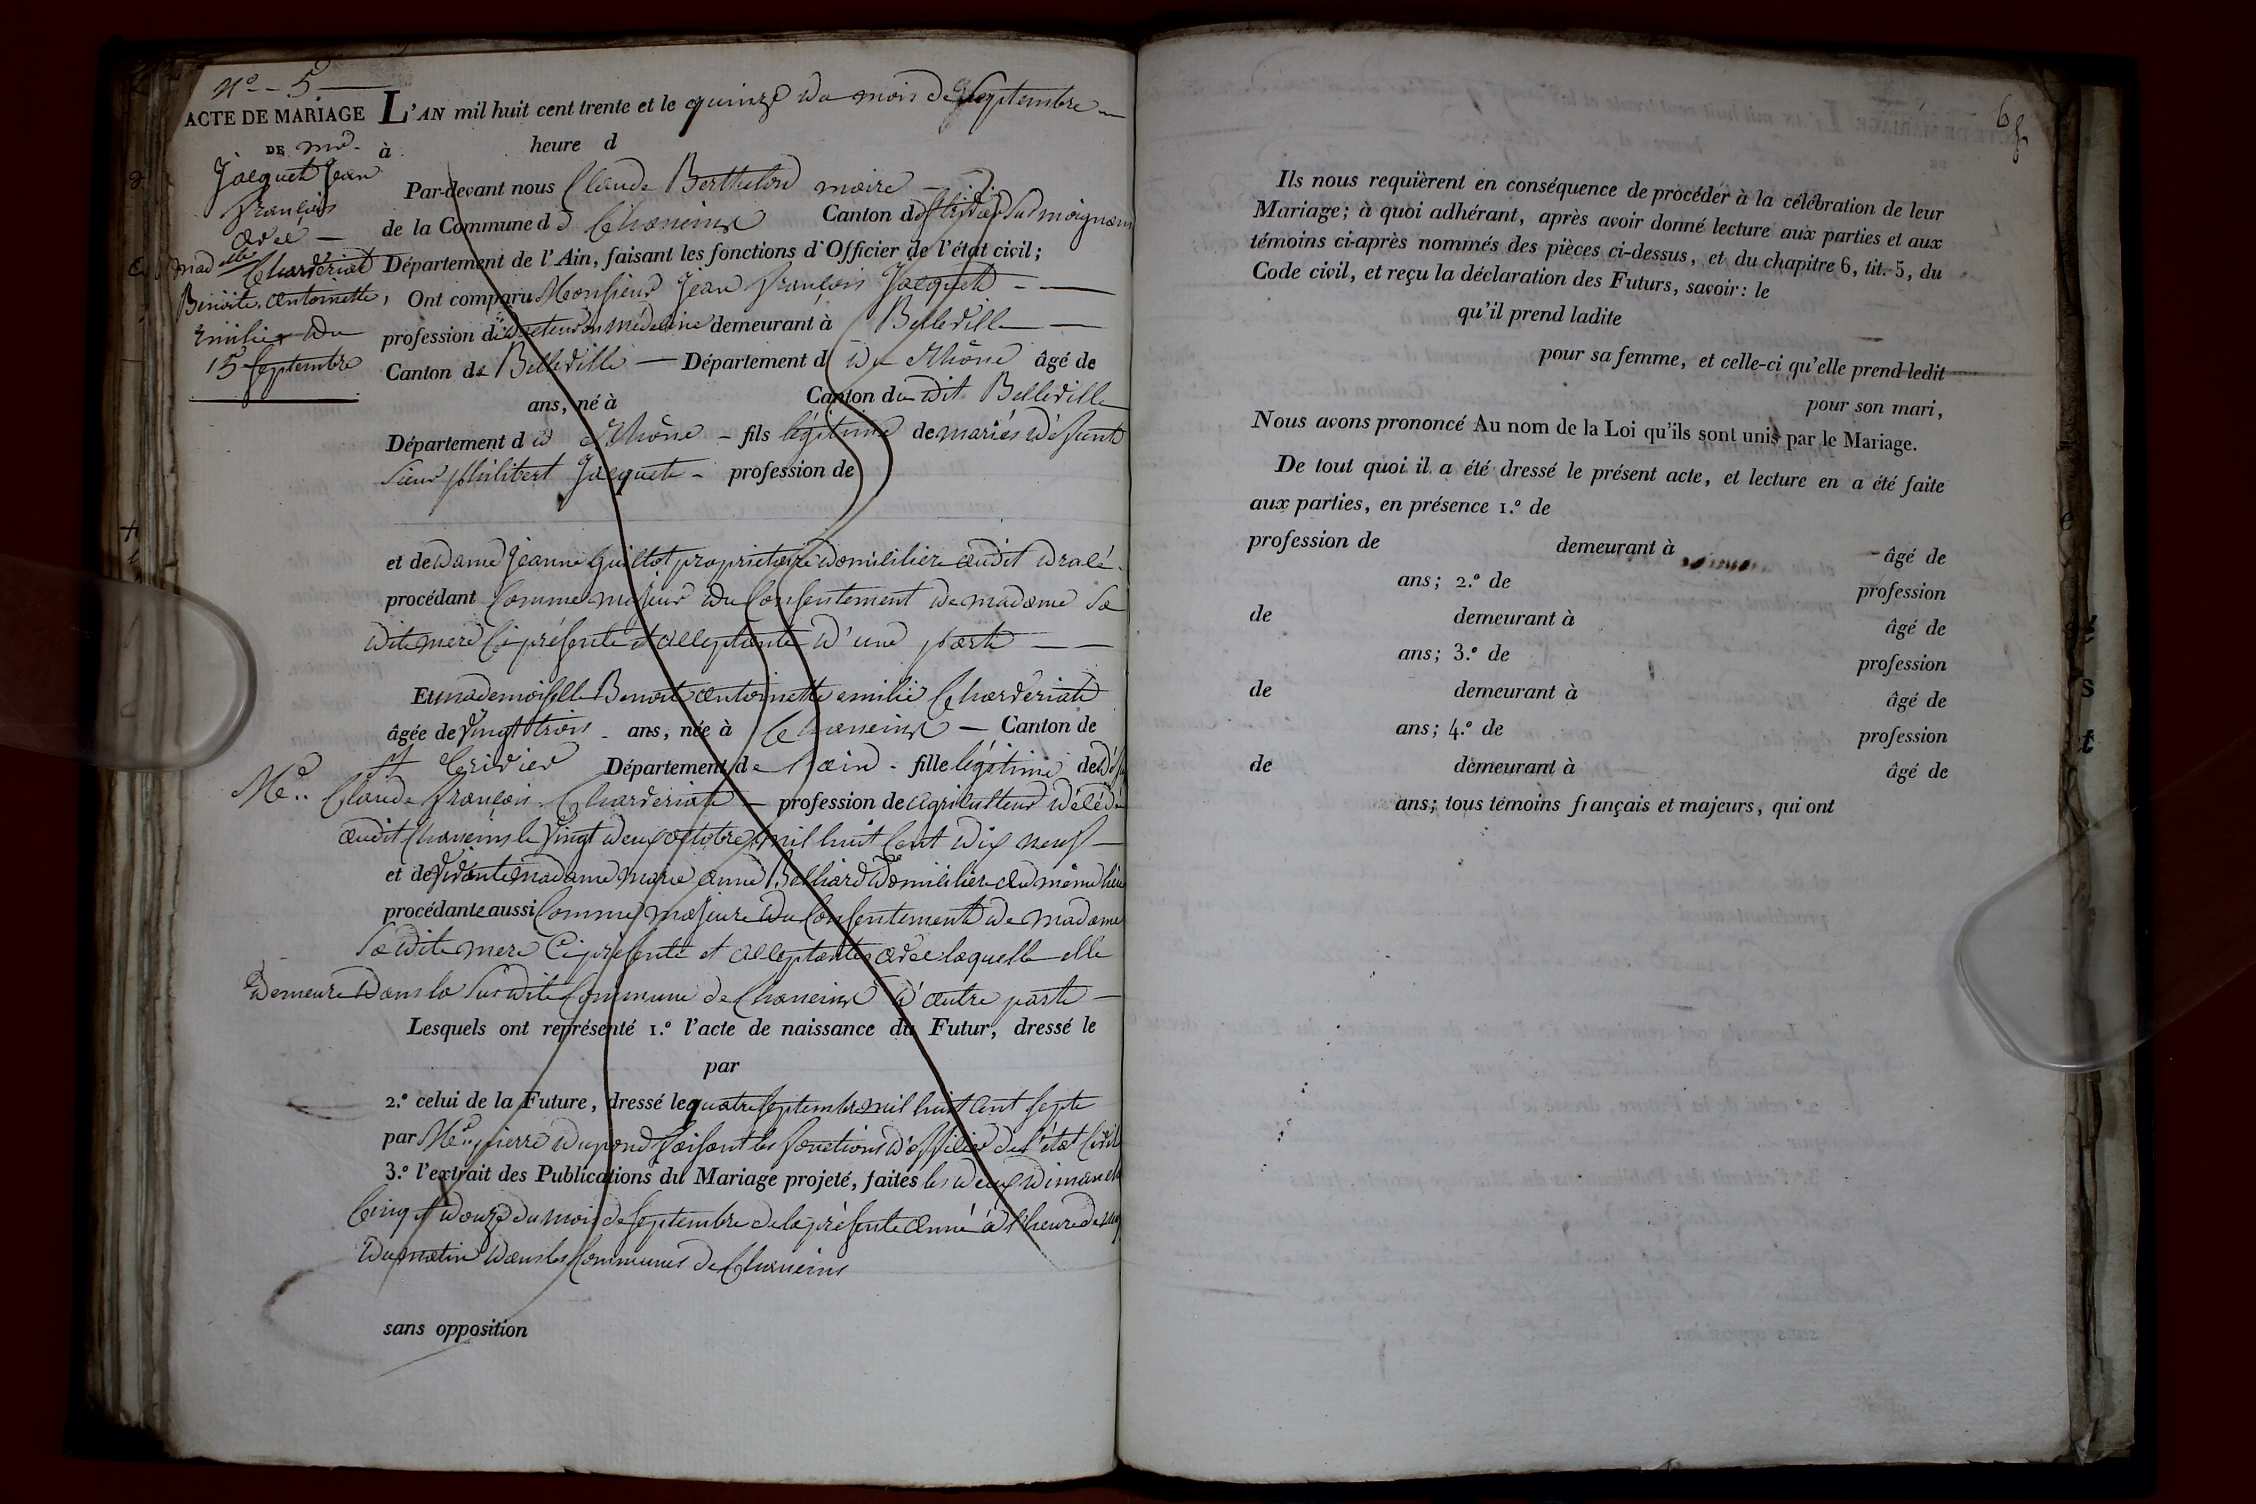 N.o - 5
ACTE DE MARIAGE
DE Mr.
Jacquet Jean
François
avec
madlle Charvériat
Benoite antoinette,
Emilie du
15 Septembre
L'AN mil huit cent trente et le quinze du mois de Septembre
à heure d
Par-devant nous Claude Berthelon maire
de la Commune d Chaneinx Canton de
Département de l'Ain, faisant les fonctions d'Officier de l'état civil;
Ont comparu Monsieur Jean François Jacquet
profession de docteur en médecine demeurant à Belleville
Canton de Belleville Département d du Rhône âgé de
ans, né à Canton du dit Belleville
Département d Rhône fils légitime de mariés défunt
Sieur philibert Jacquet profession de
et de dame Jeanne Guillot propriétaire domiciliée audit
procédant comme majeur du consentement de madame sa
dite mere ci présente et acceptante d'une part
Et mademoiselle Benoite antoinette emilie Charvériat
âgée de vingt trois ans, née à Chaneinx Canton de
St trivier Département de l'ain fille légitime de
Mr. Claude François Charvériat profession de agriculteur décédé
audit Chaneins le vingt deux octobre mil huit cent dix neuf
et de vivante madame marie anne Belliard domiciliée au même lieu
procédante aussi comme majeure du consentement de madame
sa dite mere ci présente et acceptante avec laquelle elle
demeure dans la susdite commune de Chaneinx d'autre part
Lesquels ont représenté 1.º l'acte de naissance du Futur, dressé le
par
2.º celui de la Future, dressé le quatre septembre mil huit cent sept
par Mr. pierre dupond faisant les fonctions d'officier de l'état civil
3.º l'extrait des Publications du Mariage projeté, faites les deux dimanches
cinq et douze du mois de septembre de la présente année à l'heure de
du matin dans les communes de Chaneins
sans opposition
6
Ils nous requièrent en conséquence de procéder à la célébration de leur
Mariage; à quoi adhérant, après avoir donné lecture aux parties et aux
témoins ci-après nommés des pièces ci-dessus, et du chapitre 6, tit. 5, du
Code civil, et reçu la déclaration des Futurs, savoir: le
qu'il prend ladite
pour sa femme, et celle-ci qu'elle prend ledit
pour son mari,
Nous avons prononcé Au nom de la Loi qu'ils sont unis par le Mariage.
De tout quoi il a été dressé le présent acte, et lecture en a été faite
aux parties, en présence 1.º de
profession de demeurant à âgé de
ans; 2.º de profession
de demeurant à âgé de
ans; 3.º de profession
de demeurant à âgé de
ans; 4.º de profession
de demeurant à âgé de
ans; tous témoins français et majeurs, qui ont